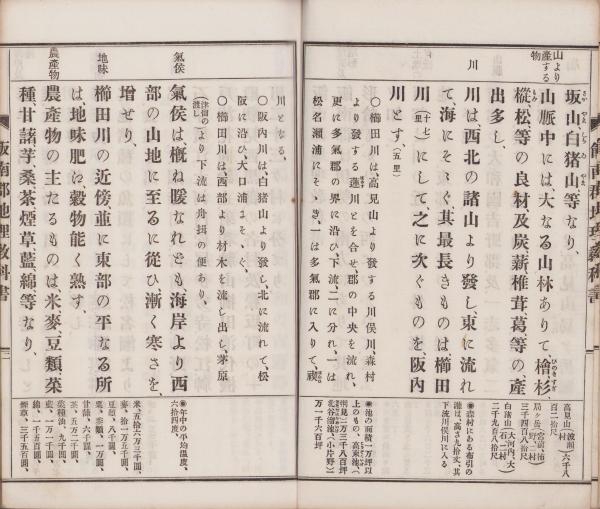 山より産する物
坂山白猪山等なり、
山脈中には、大なる山林ありて、檜、杉
樅、松等の良材及炭薪椎茸葛等の産
出多し、
川
川は、西北の諸山より發し、東に流れ
て、海にそゝぐ、其最長きものは、櫛田
川(十七里)にして、之に次ぐものを、阪内
川とす、(五里)
〇櫛田川は、高見山より發する川俣川、森村
より發する蓮川とを合せ郡の中央を流れ、
更に多氣郡の界に沿ひ、下流二に分れ、一は
松名瀬浦にそゝぎ、一は多氣郡に入りて、禊
高見山(波瀬村)六千八百二十尺
局ヶ岳(宮前、柿野二村)三千四百八十尺
白猪山(大河内、大石二村)二千九百八拾尺
◉森村にある布引の瀧は、高さ九拾丈、其下流川俣川に入る
◉池の面積一万坪以上のもの、
万一千六百坪
川となる、
〇阪内川は白猪山より發し、北に流れて、松
阪に沿ひ、大口浦にそゝぐ、
〇櫛田川は、西部より材木を流し出し、茅原
より下流は舟揖の便あり、
氣侯
氣侯は、概ね暖なれども、海岸より西
部の山地に至るに從ひ、漸く寒さを、
増せり、
地味
櫛田川の近傍並に東部の平なる所
は、地味肥え、穀物能く熟す、
農產物
農產物の主たるものは、米、麥、豆類、菜
種、甘藷、芋、桑、茶、煙草、藍、綿等なり、
◉年中の平均温度、六拾四度、
米、五拾六万三千圓、
麥、拾一万五千圓、
豆類、八千圓、
茶、五万二千圓、
菜種油、九千圓、
藍、一万一千圓、
綿、一千五百圓、
煙草、三千五百圓、
飯南郡地理教科書
三